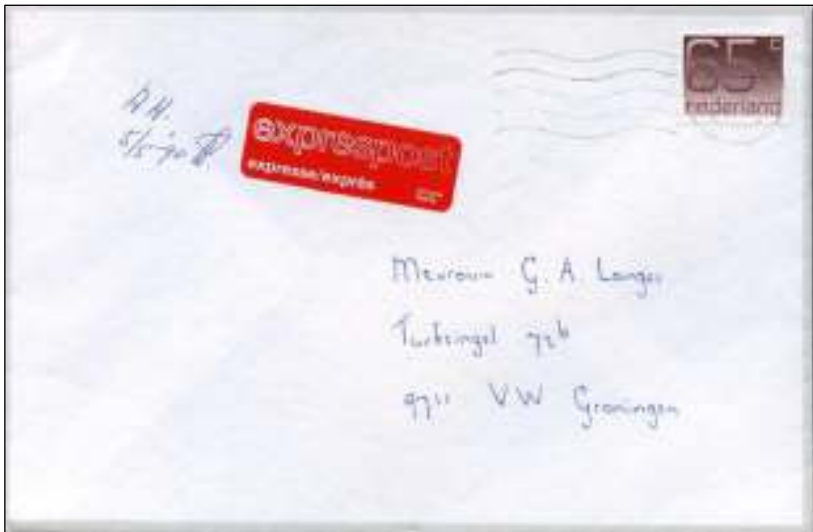 65c
nederland
AH.
5/5-'90
exprespost
expresse/exprès
Mevrouw G. A. Langer
Turfsingel 72b
9711 VW Groningen